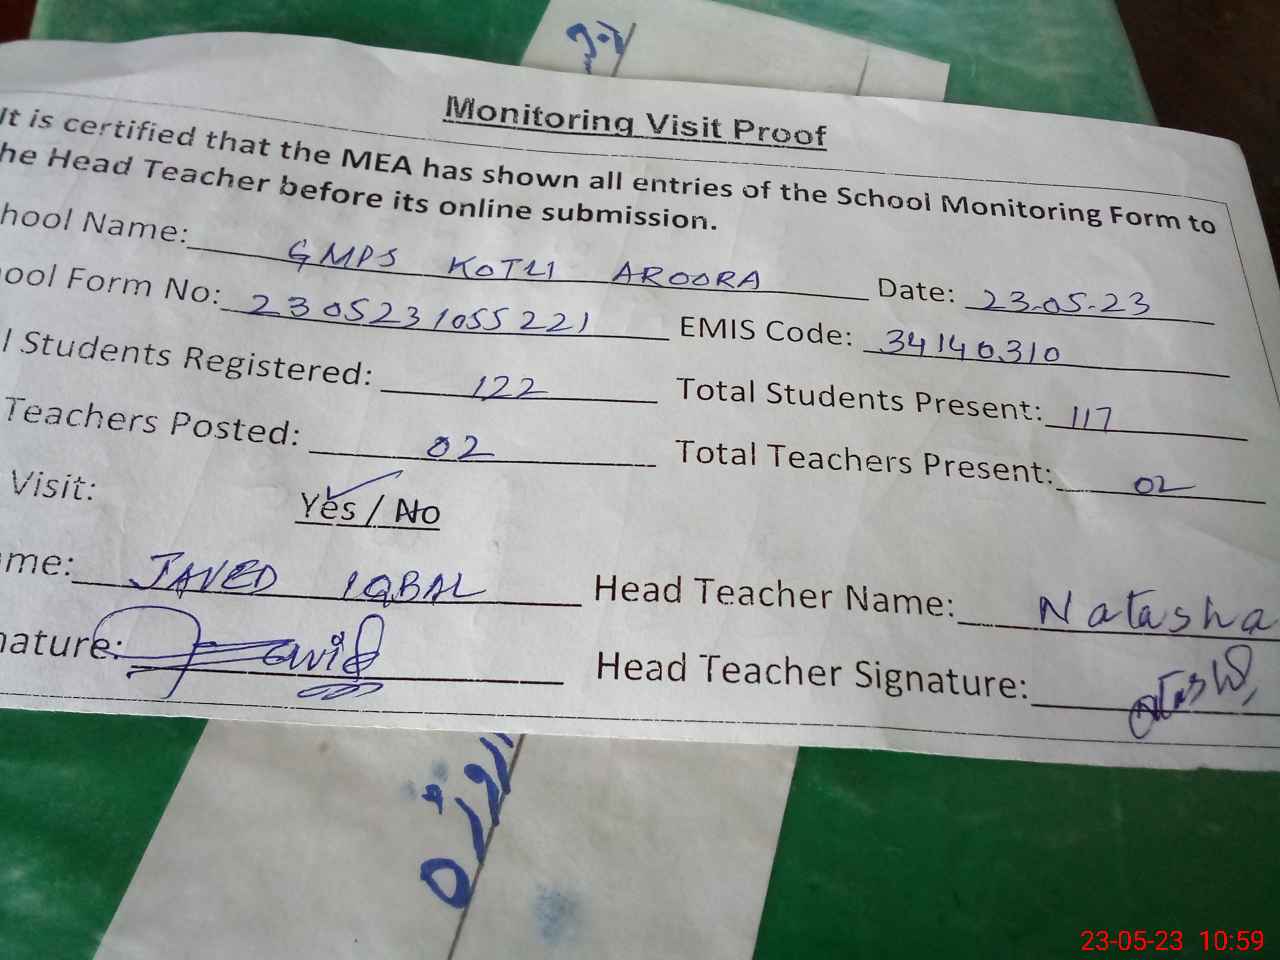 Monitoring Visit Proof
It is certified that the MEA has shown all entries of the School Monitoring Form to
he Head Teacher before its online submission.
hool Name: GMPS KOTLI AROORA Date: 23.05.23
ool Form No: 2305231055221 EMIS Code: 34140310
l Students Registered: 122 Total Students Present: 117
Teachers Posted: 02 Total Teachers Present: 02
Visit: Yes / No
me: JAVED IQBAL Head Teacher Name: Natasha
nature: Javid Head Teacher Signature: Natasha
23-05-23 10:59